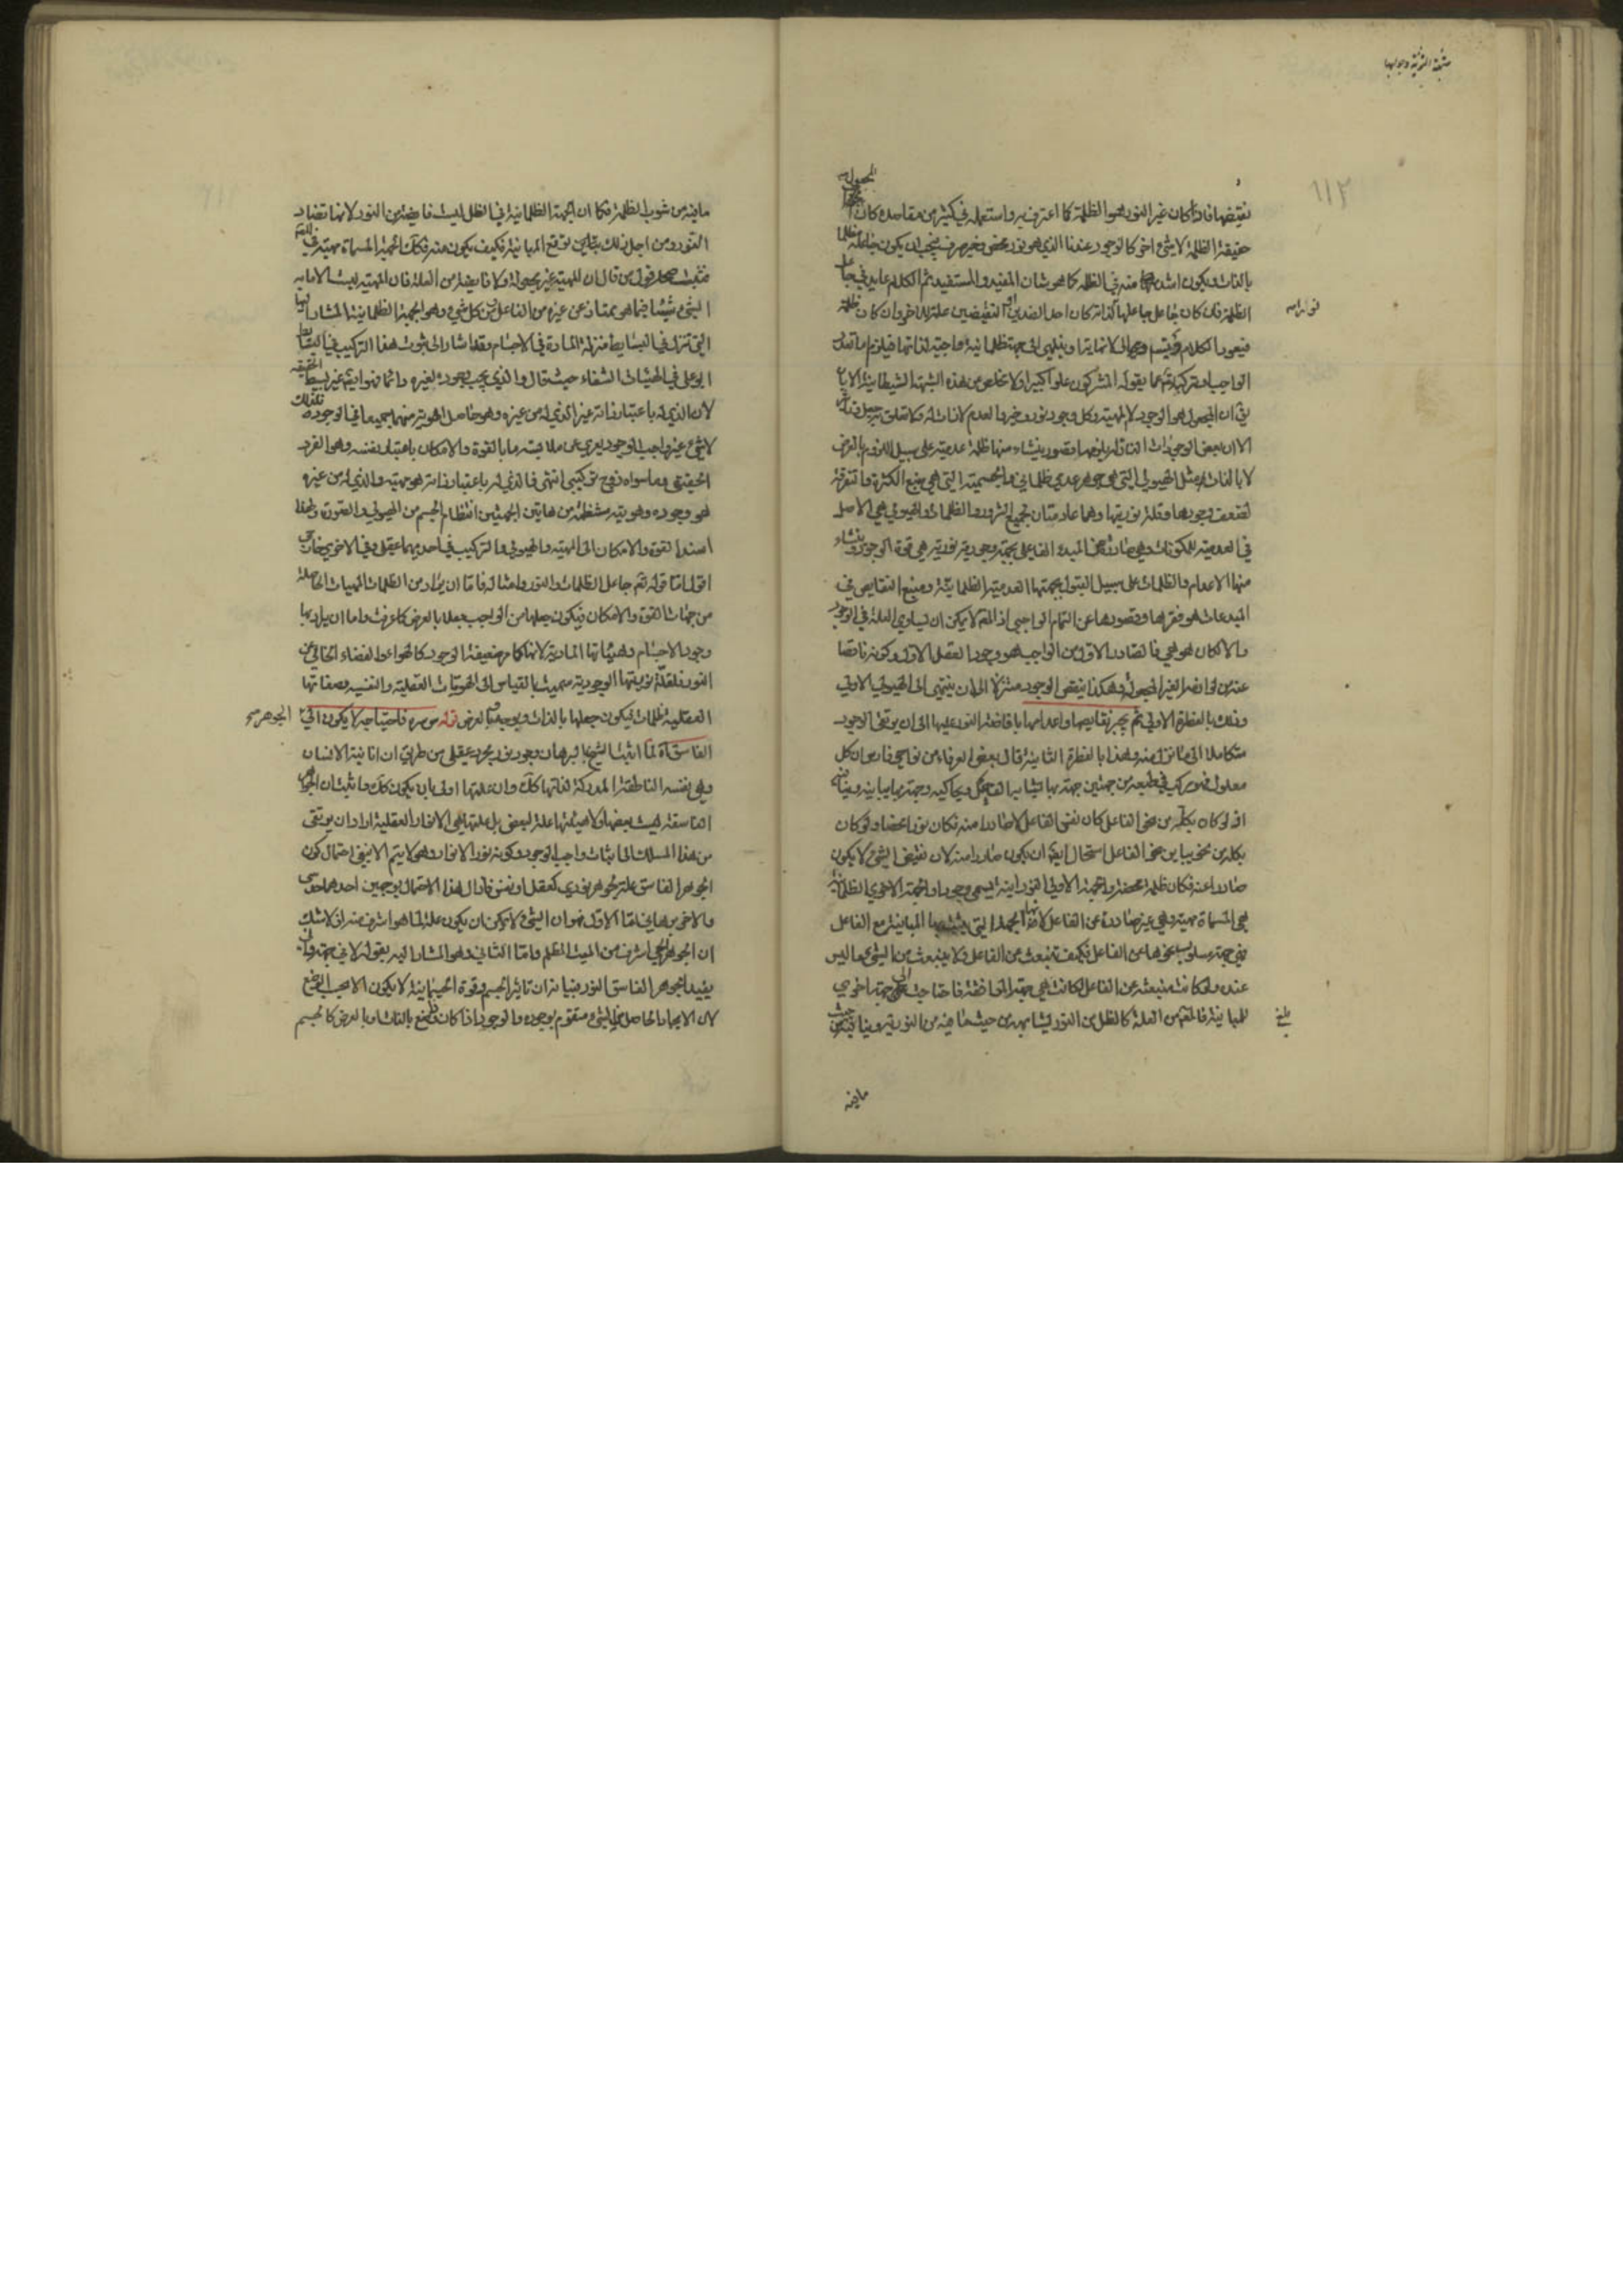 شبهة الثنوية وجوابها
١١٢
نقيضها فاذا كان غير النور هو الظلمة كما اعترف به واستعمله في كثير من مقاصده كان
حقيقة الظلمة لا شيء اخر كالوجود عندنا الذي هو نور محض وخير صرف فيجب ان يكون جاعله مظلما
بالذات ويكون اشد منه في الظلمة كما هو شان المفيد والمستفيد ثم الكلام عايد في جاعل
الظلمة فان كان جاعل جاعلها كذاته كان احد الضدين النقيضين علة للاخر وان كان ظلمة
فيعود الكلام ويتسلسل الى لا نهاية او ينتهي الى جهة ظلمانية واجبة لذاتها فيلزم اما تعدد
الواجب او تركبه تعالى عما يقوله المشركون علوا كبيرا ولا مخلص من هذه الشبهة الشيطانية الا بان
المجعول هو الوجود لا المهية وكل وجود نور وخير والعدم لا ذات له فلا تعلق به
الا ان بعض الوجودات النازلة يلزمها قصور ينشاء منها ظلمة عدمية على سبيل اللزوم بالعرض
لا بالذات مثل الهيولي التي هي جوهر عدمي ظلماني والجسمية التي هي منبع الكثرة والتفرقة
لضعف وجودها وقلة نوريتها وهما عادمتان لجميع الشرور والظلمات والهيولي هي الاصل
في العدمية للمكونات وهي صادرة عن المبدء الفاعلي بجهة وجودية نورية هي قوة الوجود وينشاء
منها الاعدام والظلمات على سبيل القبول بجهتها العدمية الظلمانية ومنبع النقايص في
المبدعات هو فقرها وقصورها عن التمام الواجبي اذ المعلول لا يمكن ان يساوي العلة في الوجود
والا لكان هو هي فالصادر الاول من الواجب هو وجود العقل الاول وكونه ناقصا
عنه من لوازمه الغير المجعولة وهكذا ينقص الوجود متنزلا الى ان ينتهي الى الهيولي الاولي
وذلك بالفطرة الاولي ثم يجبر نقايصها واعدامها بافاضة النور عليها الى ان يرتقي الوجود
متكاملا الى ما نزل منه وهذا بالفطرة الثانية قال بعض العرفاء من نواحي فارس ان كل
معلول فهو مركب في طبعه من جهتين جهة بها يشابه الفاعل ويحاكيه وجهة بها يباينه وينافيه
اذ لو كان بكله من نحو الفاعل كان نفس الفاعل لا صادرا منه فكان نورا محضا ولو كان
بكله من نحو يباين نحو الفاعل استحال ايضا ان يكون صادرا منه لان نقيض الشيء لا يكون
صادرا عنه فكان ظلمة محضة والجهة الاولي النورانية تسمى وجودا والجهة الاخري الظلمانية
هي المسماة مهية وهي غير صادرة عن الفاعل لانها الجهة التي يثبت بها المباينة مع الفاعل
فهي جهة مسلوب نحوها عن الفاعل فكيف تنبعث من الفاعل ولا ينبعث من الشيء ما ليس
عنده ولو كانت منبعثة عن الفاعل لكانت هي جهة الموافقة فاحتاجت الى جهة اخري
للمباينة فالمعلول من العلة كالظل من النور يشابهه من حيث ما فيه من النورية ويباينه من حيث
ما فيه
ما فيه من شوب الظلمة فكما ان الجهة الظلمانية في الظل ليست فايضة من النور لانها تضاد
النور ومن اجل ذلك توقع المباينة فكيف يكون منه فكذلك الجهة المسماة مهية في المعلول
فثبت صحة قول من قال ان المهية غير مجعولة ولا فايضة من العلة فان المهية ليست الا ما به
الشيء شيء فيما هو ممتاز عن غيره من الفاعل ومن كل شيء وهو الجهة الظلمانية المشار اليها
التي تنزل في البسايط منزلة المادة في الاجسام وقد اشار الى ثبوت هذا التركيب في البسايط
ابو علي في الهيات الشفاء حيث قال والذي يجب وجوده بغيره دائما فهو ايضا غير بسيط الحقيقة
لان الذي له باعتبار ذاته غير الذي له من غيره وهو حاصل الهوية منهما جميعا في الوجود فلذلك
لا شيء غير واجب الوجود يعري عن ملابسة ما بالقوة والامكان باعتبار نفسه وهو الفرد
الحقيقي وما سواه زوج تركيبي انتهى فالذي له باعتبار ذاته هو مهيته والذي له من غيره
هو وجوده وهويته منتظمة من هاتين الجهتين انتظام الجسم من الهيولي والصورة ولهذا
اسند القوة والامكان الى المهية والهيولي والتركيب في احديهما عقلي وفي الاخري خارجي
اقول اما قوله تعالى جاعل الظلمات والنور وامثاله فاما ان يراد من الظلمات المهيات الحاصلة
من جهات القوة والامكان فيكون جعلها من الواجب جعلا بالعرض كما عرفت واما ان يراد بها
وجود الاجسام وهيئاتها المادية لانها كما مر ضعيفة الوجود كالهواء والفضاء الخالي من
النور فلقلة نوريتها الوجودية سميت بالقياس الى الهويات العقلية والنفسية وصفاتها
العقلية ظلمات فيكون جعلها بالذات ويوجه بالعرض قوله س سره فاحتياجه لا يكون الى
الجوهر صح
الغاسق آه لما اثبت الشيخ بالبرهان وجود نور مجرد عقلي من طريق ان انانية الانسان
وهي نفسه الناطقة المدركة لذاتها كذلك وان علتها اولى بان يكون كذلك واثبت ان الجواهر
الغاسقة ليست بعضها ولا هيئتها علة لبعض بل علتها هي الانوار العقلية اراد ان يرتقي
من هذا المسلك الى اثبات واجب الوجود وكونه نور الانوار وهي لا يتم الا بنفي احتمال كون
الجوهر الغاسق علة لجوهر نوري كعقل او نفس فازال هذا الاحتمال بوجهين احدهما حدسي
والاخر برهاني اما الاول فهو ان الشيء لا يمكن ان يكون علة لما هو اشرف منه اذ لا شك
ان الجوهر الحي اشرف من الميت المظلم واما الثاني وهو المشار اليه بقوله لا في جهة وانى
يفيد الجوهر الغاسق النور فبيانه ان تاثير الجسم وقوة الجسمانية لا يكون الا بحسب الوضع
لان الايجاد الحاصل من الشيء متقوم بوجوده والوجود اذا كان ذا وضع بالذات او بالعرض كالجسم